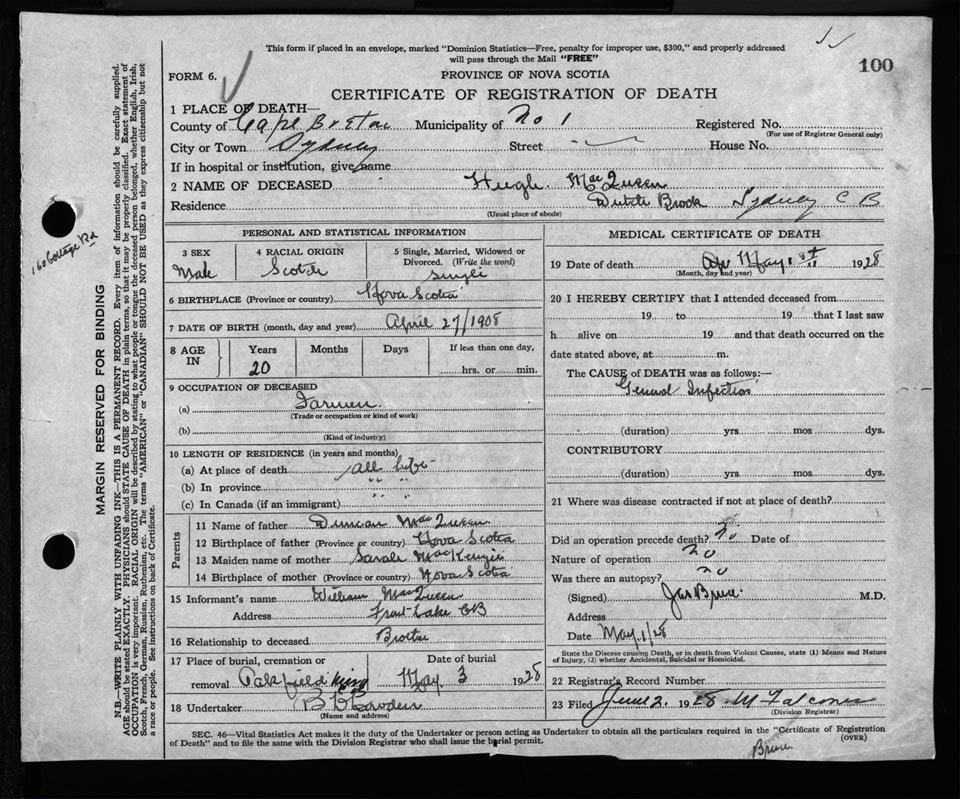 This form if placed in an envelope, marked "Dominion Statistics—Free, penalty for improper use, $300," and properly addressed
will pass through the Mail "FREE"
100
FORM 6.
PROVINCE OF NOVA SCOTIA
CERTIFICATE OF REGISTRATION OF DEATH
1 PLACE OF DEATH—
County of Cape Breton Municipality of No 1 Registered No.
(For use of Registrar General only)
City or Town Sydney Street House No.
If in hospital or institution, give name
2 NAME OF DECEASED Hugh MacQueen
Residence Dutch Brook Sydney C B
(Usual place of abode)
PERSONAL AND STATISTICAL INFORMATION
3 SEX 4 RACIAL ORIGIN 5 Single, Married, Widowed or
Divorced. (Write the word)
Male Scotch Single
6 BIRTHPLACE (Province or country) Nova Scotia
7 DATE OF BIRTH (month, day and year) April 27/1908
8 AGE IN Years Months Days If less than one day,
20 hrs. or min.
9 OCCUPATION OF DECEASED
(a) Farmer
(Trade or occupation or kind of work)
(b)
(Kind of industry)
10 LENGTH OF RESIDENCE (in years and months)
(a) At place of death all life
(b) In province " "
(c) In Canada (if an immigrant) " "
Parents
11 Name of father Duncan MacQueen
12 Birthplace of father (Province or country) Nova Scotia
13 Maiden name of mother Sarah MacKenzie
14 Birthplace of mother (Province or country) Nova Scotia
15 Informant's name William MacQueen
Address Lake CB
16 Relationship to deceased Brother
17 Place of burial, cremation or Date of burial
removal Oakfield May 3 1928
18 Undertaker
(Name and address)
MEDICAL CERTIFICATE OF DEATH
19 Date of death May 1st 1928
(Month, day and year)
20 I HEREBY CERTIFY that I attended deceased from
19 to 19 that I last saw
h alive on 19 and that death occurred on the
date stated above, at m.
The CAUSE of DEATH was as follows:—
General Infection
(duration) yrs. mos dys.
CONTRIBUTORY
(duration) yrs. mos dys.
21 Where was disease contracted if not at place of death?
Did an operation precede death? No Date of
Nature of operation no
Was there an autopsy? no
(Signed) Jas Bruce M.D.
Address
Date May 1/28
State the Disease causing Death, or in death from Violent Causes, state (1) Means and Nature
of Injury, (2) whether Accidental, Suicidal or Homicidal.
22 Registrar's Record Number
23 Filed June 2 1928
(Division Registrar)
SEC. 46—Vital Statistics Act makes it the duty of the Undertaker or person acting as Undertaker to obtain all the particulars required in the "Certificate of Registration
of Death" and to file the same with the Division Registrar who shall issue the burial permit.
(OVER)
Bruce
160 Cottage Rd
MARGIN RESERVED FOR BINDING
N.B.—WRITE PLAINLY WITH UNFADING INK—THIS IS A PERMANENT RECORD. Every item of information should be carefully supplied.
AGE should be stated EXACTLY. PHYSICIANS should STATE CAUSE OF DEATH in plain terms, so that it may be properly classified. Exact statement of
OCCUPATION is very important. RACIAL ORIGIN will be described by stating to what people or tongue the deceased person belonged, whether English, Irish,
Scotch, French, German, Russian, Ruthenian, etc. The terms "AMERICAN" or "CANADIAN" SHOULD NOT BE USED as they express citizenship but not
a race or people. See instructions on back of Certificate.